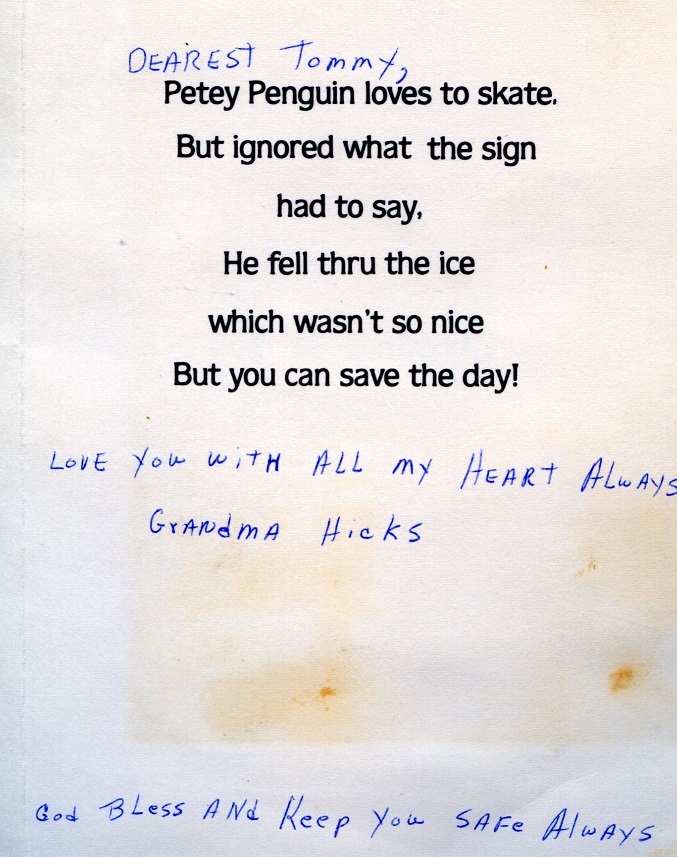 DEAREST Tommy,
Petey Penguin loves to skate.
But ignored what the sign
had to say,
He fell thru the ice
which wasn't so nice
But you can save the day!
LOVE You WITH ALL my HEART ALWAYS
GrANdmA Hicks
God BLess ANd Keep You SAFe Always